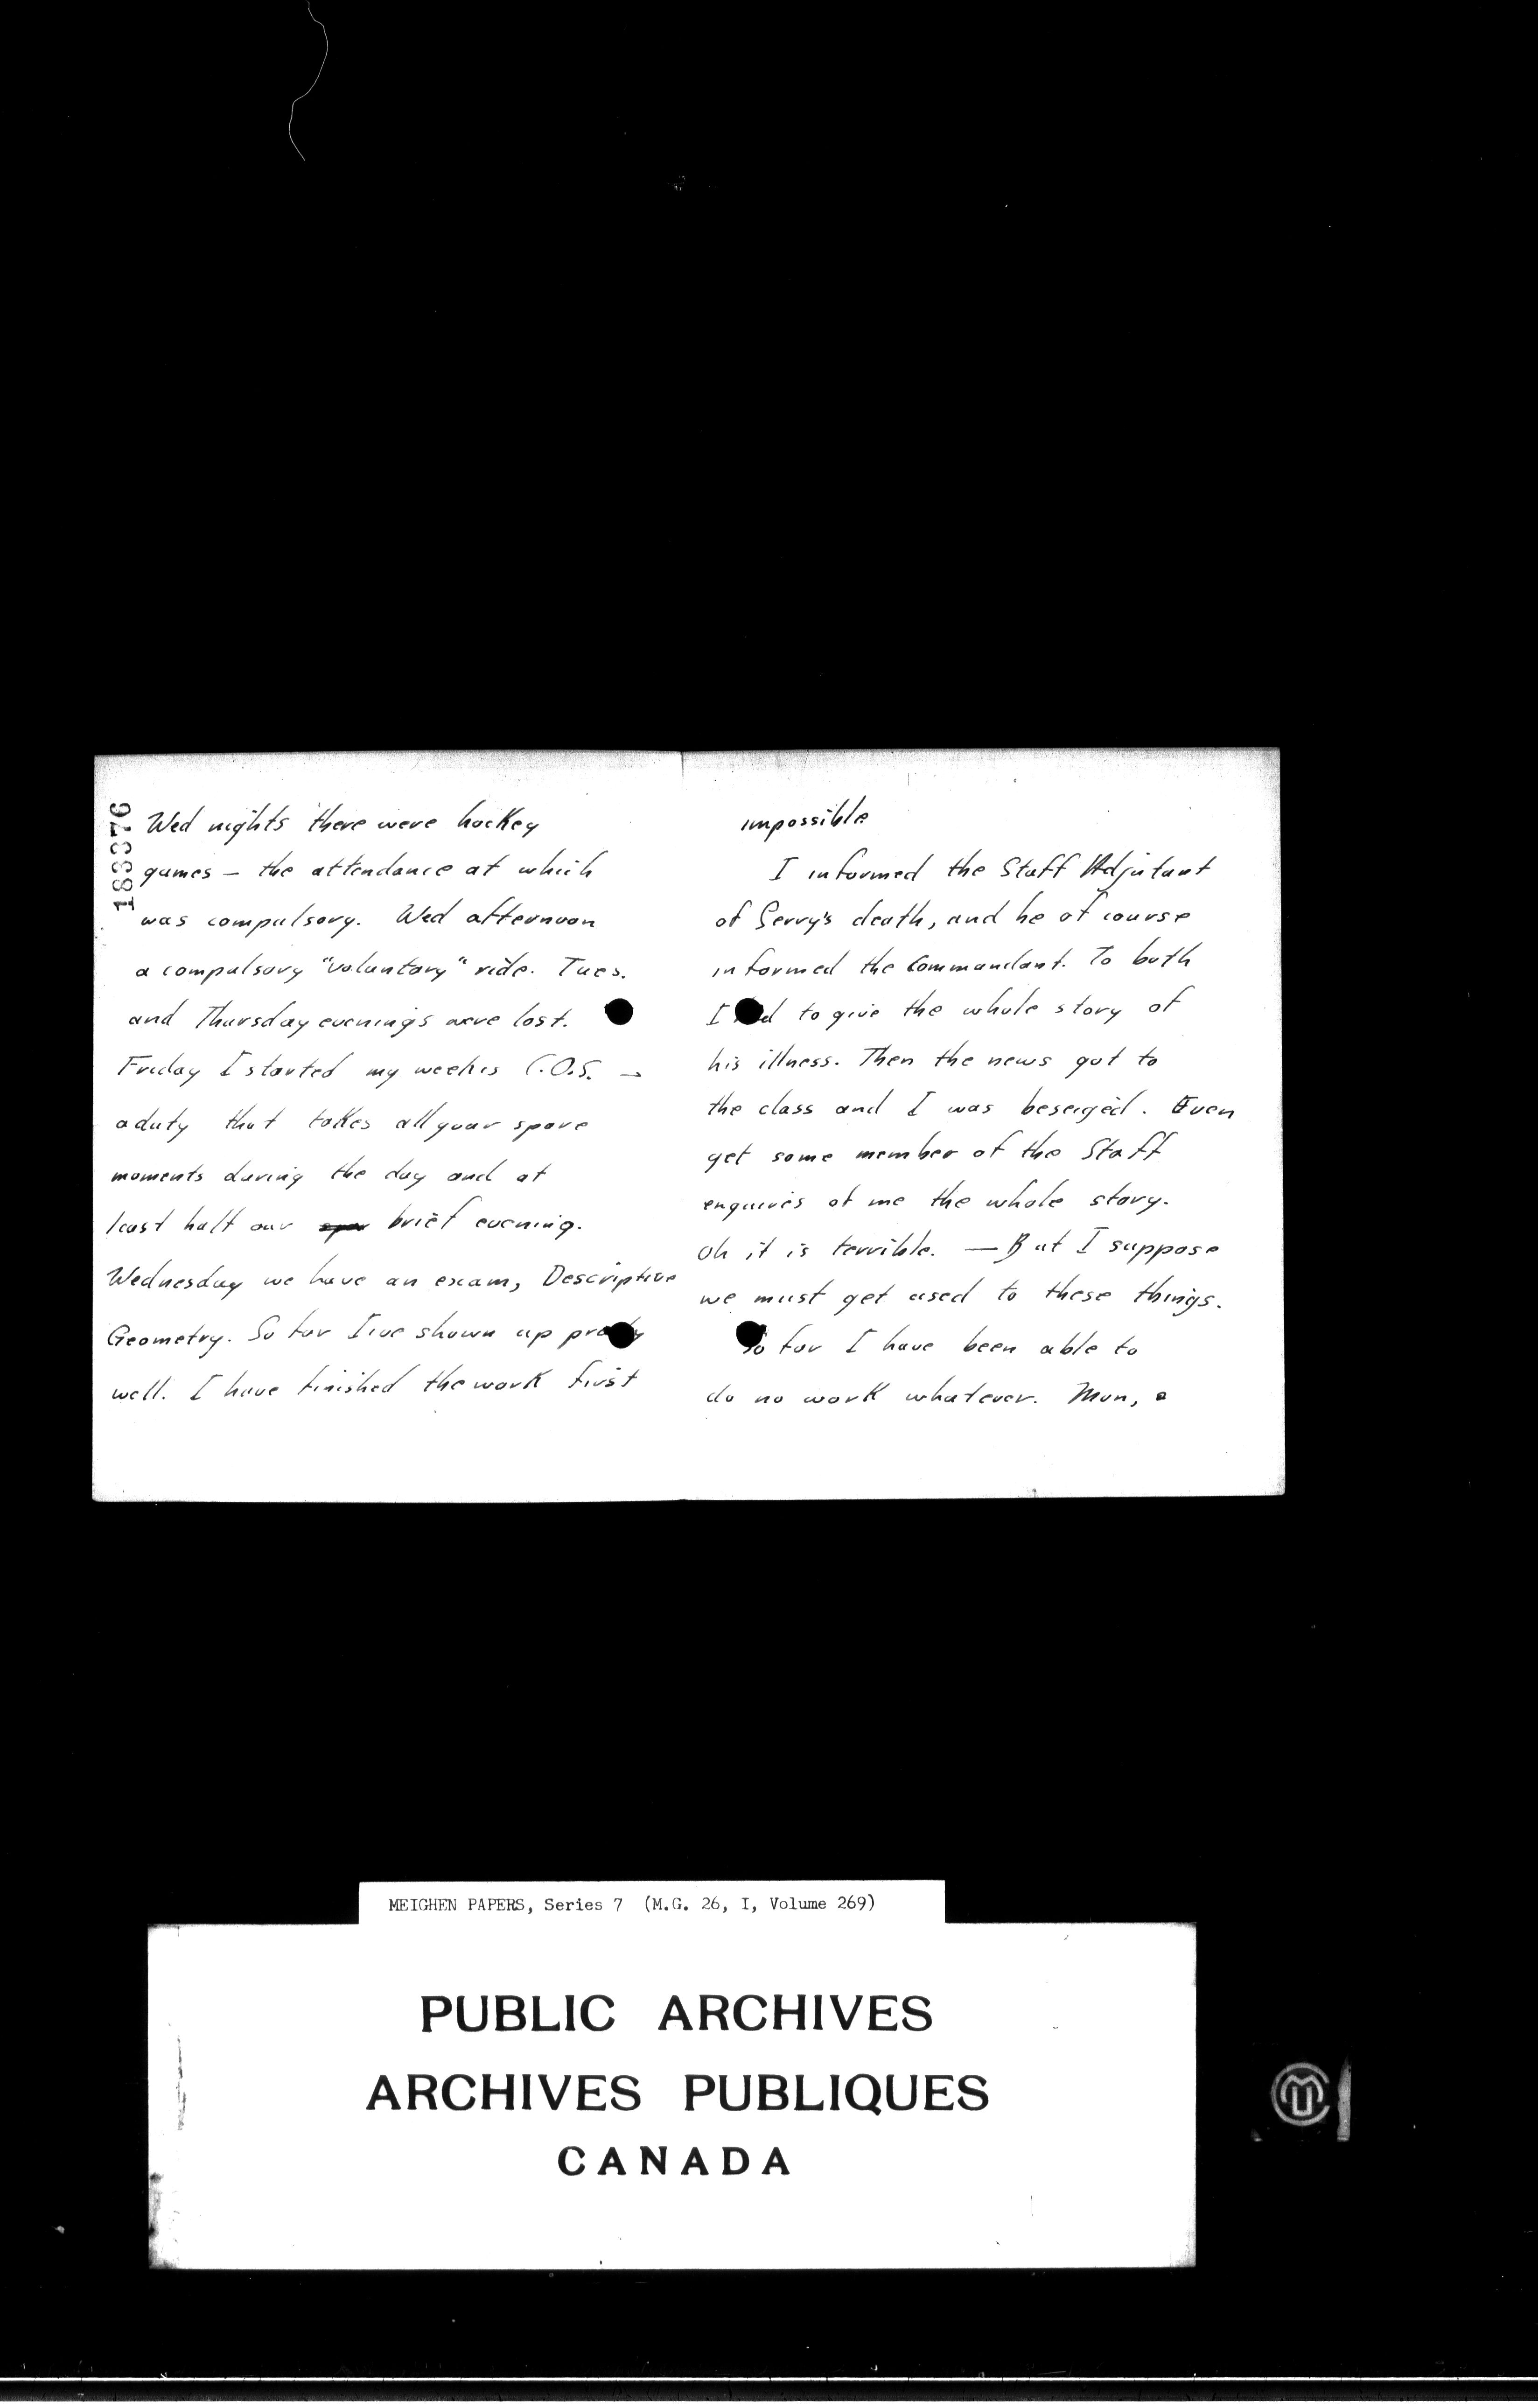 183376
Wed nights there were hockey
games – the attendance at which
was compulsory. Wed afternoon
a compulsory "voluntary" ride. Tues.
and Thursday evenings were lost.
Friday I started my weekes C.O.S. –
a duty that takes all your spare
moments during the day and at
least half our brief evening.
Wednesday we have an exam, Descriptive
Geometry. So far I've shown up pretty
well. I have finished the work first
impossible
I informed the Staff Adjutant
of Gerry's death, and he of course
informed the Commandant. To both
I had to give the whole story of
his illness. Then the news got to
the class and I was beseiged. Even
yet some member of the Staff
enquires of me the whole story.
Oh it is terrible. — But I suppose
we must get used to these things.
So far I have been able to
do no work whatever. Mon,
MEIGHEN PAPERS, Series 7 (M.G. 26, I, Volume 269)
PUBLIC ARCHIVES
ARCHIVES PUBLIQUES
CANADA